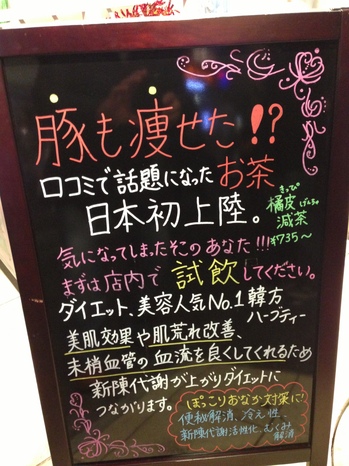 豚も痩せた!?
口コミで話題になったお茶
日本初上陸。
きっぴ げんちゃ
橘皮
減茶
¥735〜
気になってしまったそこのあなた!!!
まずは店内で試飲してください。
ダイエット、美容人気No.1韓方
ハーブティー
美肌効果や肌荒れ改善、
末梢血管の血流を良くしてくれるため
新陳代謝が上がりダイエットに
つながります。
ぽっこりおなか対策に!
便秘解消、冷え性、
新陳代謝活性化、むくみ
解消